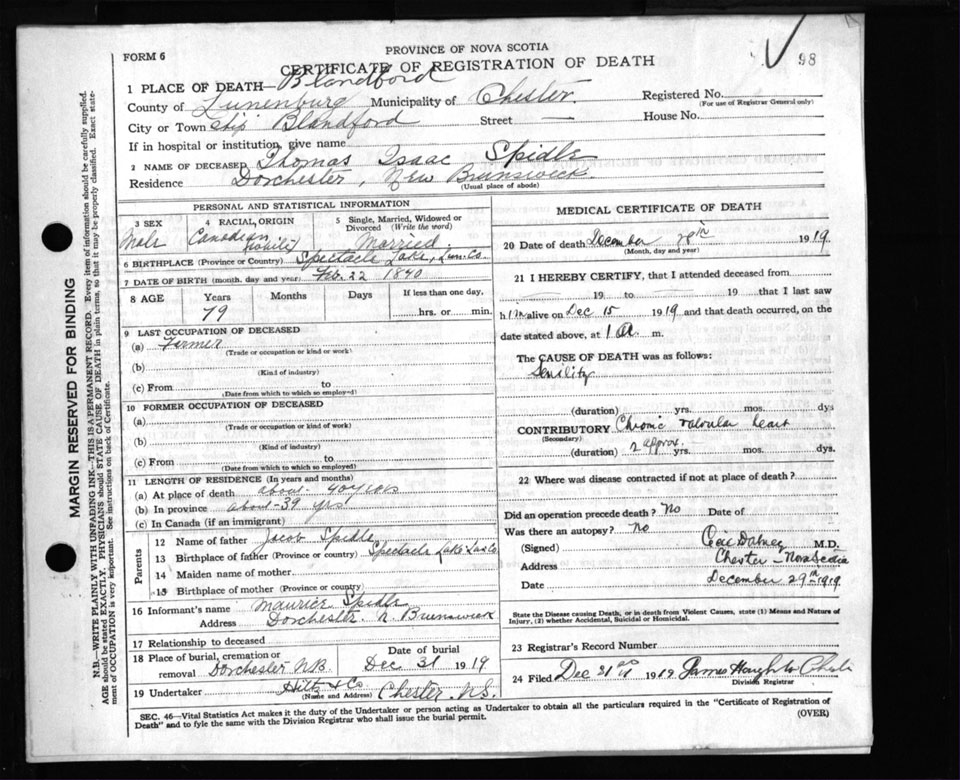 98
FORM 6
PROVINCE OF NOVA SCOTIA
CERTIFICATE OF REGISTRATION OF DEATH
1 PLACE OF DEATH— Blandford
County of Lunenburg Municipality of Chester. Registered No.
(For use of Registrar General only)
City or Town ship Blandford Street — House No.
If in hospital or institution, give name
2 NAME OF DECEASED Thomas Isaac Spidle
Residence Dorchester, New Brunswick.
(Usual place of abode)
PERSONAL AND STATISTICAL INFORMATION
3 SEX 4 RACIAL ORIGIN 5 Single, Married, Widowed or Divorced (Write the word)
Male Canadian Married.
6 BIRTHPLACE (Province or Country) Spectacle Lake, Lun. Co.
7 DATE OF BIRTH (month, day and year) Feb. 22 1840
8 AGE Years Months Days If less than one day,
79 hrs. or min.
9 LAST OCCUPATION OF DECEASED
(a) Farmer
(Trade or occupation or kind or work)
(b)
(Kind of industry)
(c) From to
(Date from which to which so employed)
10 FORMER OCCUPATION OF DECEASED
(a)
(Trade or occupation or kind of work)
(b)
(Kind of industry)
(c) From to
(Date from which to which so employed)
11 LENGTH OF RESIDENCE (In years and months)
(a) At place of death about 40 years
(b) In province about 39 yrs
(c) In Canada (if an immigrant)
Parents
12 Name of father Jacob Spidle
13 Birthplace of father (Province or country) Spectacle Lake Lun Co
14 Maiden name of mother
15 Birthplace of mother (Province or country)
16 Informant's name Maurice Spidle
Address Dorchester N. Brunswick
17 Relationship to deceased
18 Place of burial, cremation or removal Dorchester N.B. Date of burial Dec 31 1919
19 Undertaker Hiltz & Co. Chester N.S.
(Name and Address)
MEDICAL CERTIFICATE OF DEATH
20 Date of death December 28th 1919.
(Month, day and year)
21 I HEREBY CERTIFY, that I attended deceased from
19 to 19 that I last saw
him alive on Dec 15 1919 and that death occurred, on
the date stated above, at 1 a. m.
The CAUSE OF DEATH was as follows:
Senility
(duration) yrs. mos. dys
CONTRIBUTORY Chronic valvular heart
(Secondary)
(duration) 2 approx. yrs. mos. dys
22 Where was disease contracted if not at place of death?
Did an operation precede death? No Date of
Was there an autopsy? No
(Signed) M.D.
Address Chester – Nova Scotia
Date December 29th 1919
State the Disease causing Death, or in death from Violent Causes, state (1) Means and Nature of Injury, (2) whether Accidental, Suicidal or Homicidal.
23 Registrar's Record Number
24 Filed Dec 1919 James
Division Registrar
SEC. 46—Vital Statistics Act makes it the duty of the Undertaker or person acting as Undertaker to obtain all the particulars required in the "Certificate of Registration of
Death" and to fyle the same with the Division Registrar who shall issue the burial permit.
(OVER)
MARGIN RESERVED FOR BINDING
N.B.—WRITE PLAINLY WITH UNFADING INK—THIS IS A PERMANENT RECORD. Every item of information should be carefully supplied.
AGE should be stated EXACTLY. PHYSICIANS should STATE CAUSE OF DEATH in plain terms, so that it may be properly classified. Exact state-
ment of OCCUPATION is very important. See instructions on back of Certificate.